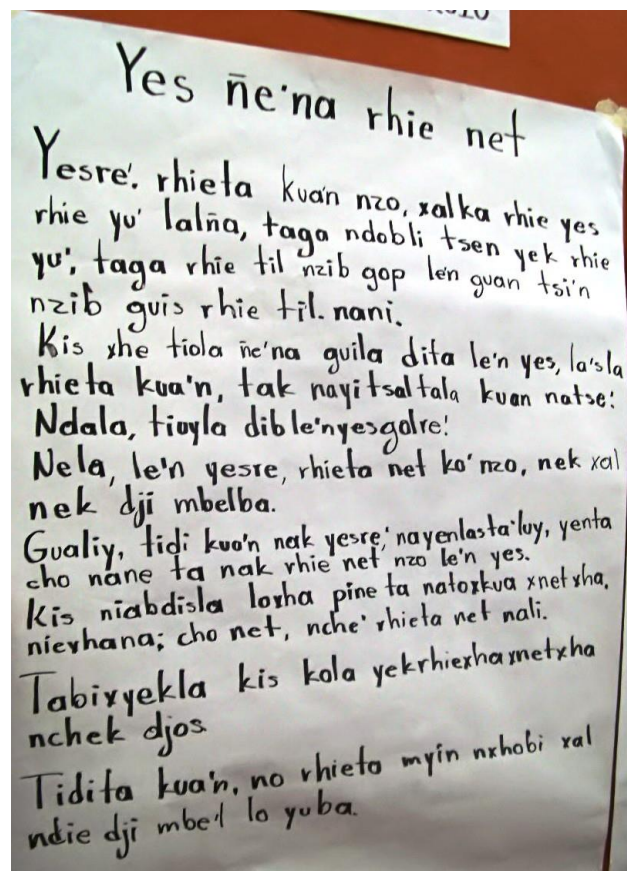 Yes ñe'na rhie net
Yesre'. rhieta kua'n nzo, xalka rhie yes
rhie yu' lalña, taga ndobli tsen yek rhie
yu', taga rhie til nzib gop le'n guan tsi'n
nzib guis rhie til. nani.
Kis xhe tiola ñe'na guila dita le'n yes, la'sla
rhieta kua'n, tak nayitsaltala kuan natse'
Ndala, tiuyla dible'nyesgolre'
Nela, le'n yesre, rhieta net ko' nzo, nek xal
nek djí mbelba.
Gualiy, tidi kuo'n nak yesre,' nayenlasta'luy, yenta
cho nane ta nak rhie net nzo le'n yes.
Kis niabdisla loxha pine ta natoxkua xnetxha,
niexhana; cho net, nche' rhieta net nali.
Tabixyekla kis kola yekrhiexhaxnetxha
nchek djos.
Tidita kua'n, no rhieta myin nxhobi xal
ndie djí mbe'l lo yuba.